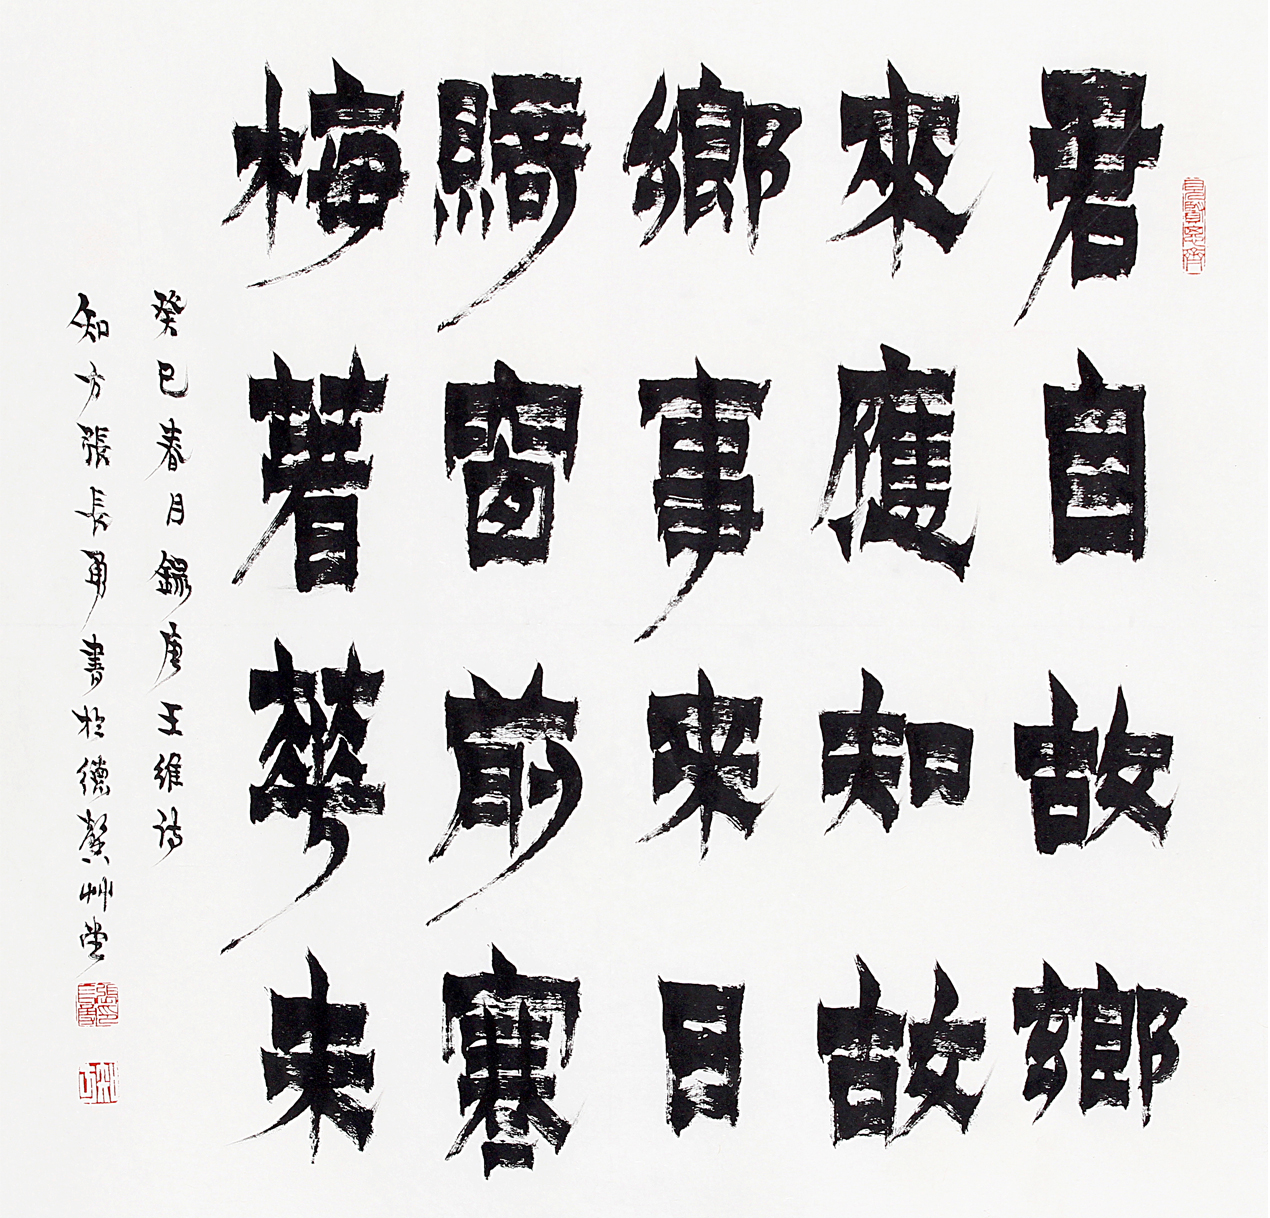 君自故鄉
來應知故
鄉事来日
綺窗前寒
梅著華未
癸巳春月錄唐王維詩
知方張長勇書於德馨艸堂